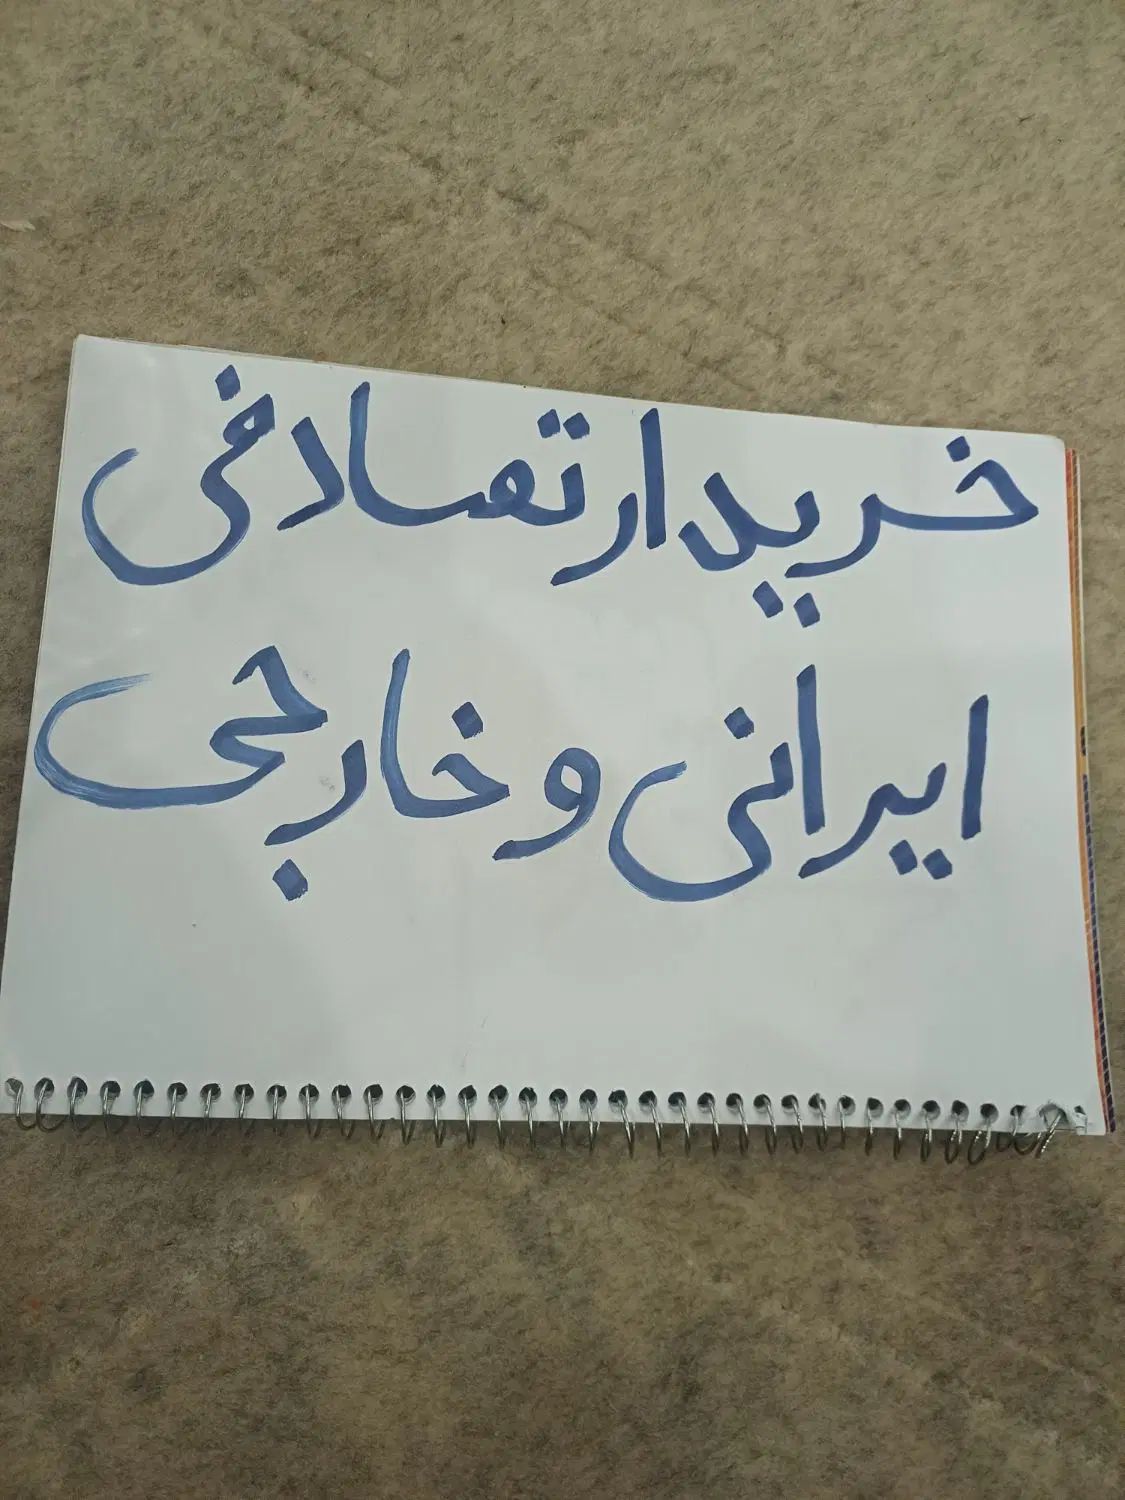 خریدار تصادفی
ایرانی و خارجی